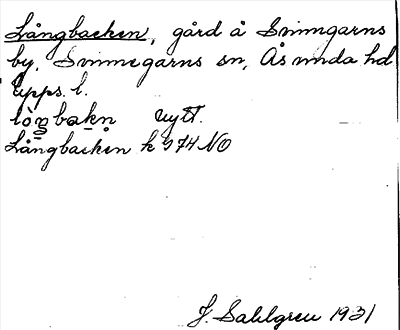 Långbacken, gård å Svinngarns
by, Svinnegarns sn, Åsunda hd
Upps. l.
lòŋbakn uytt.
Långbacken k 974 NO
J. Sahlgren 1931